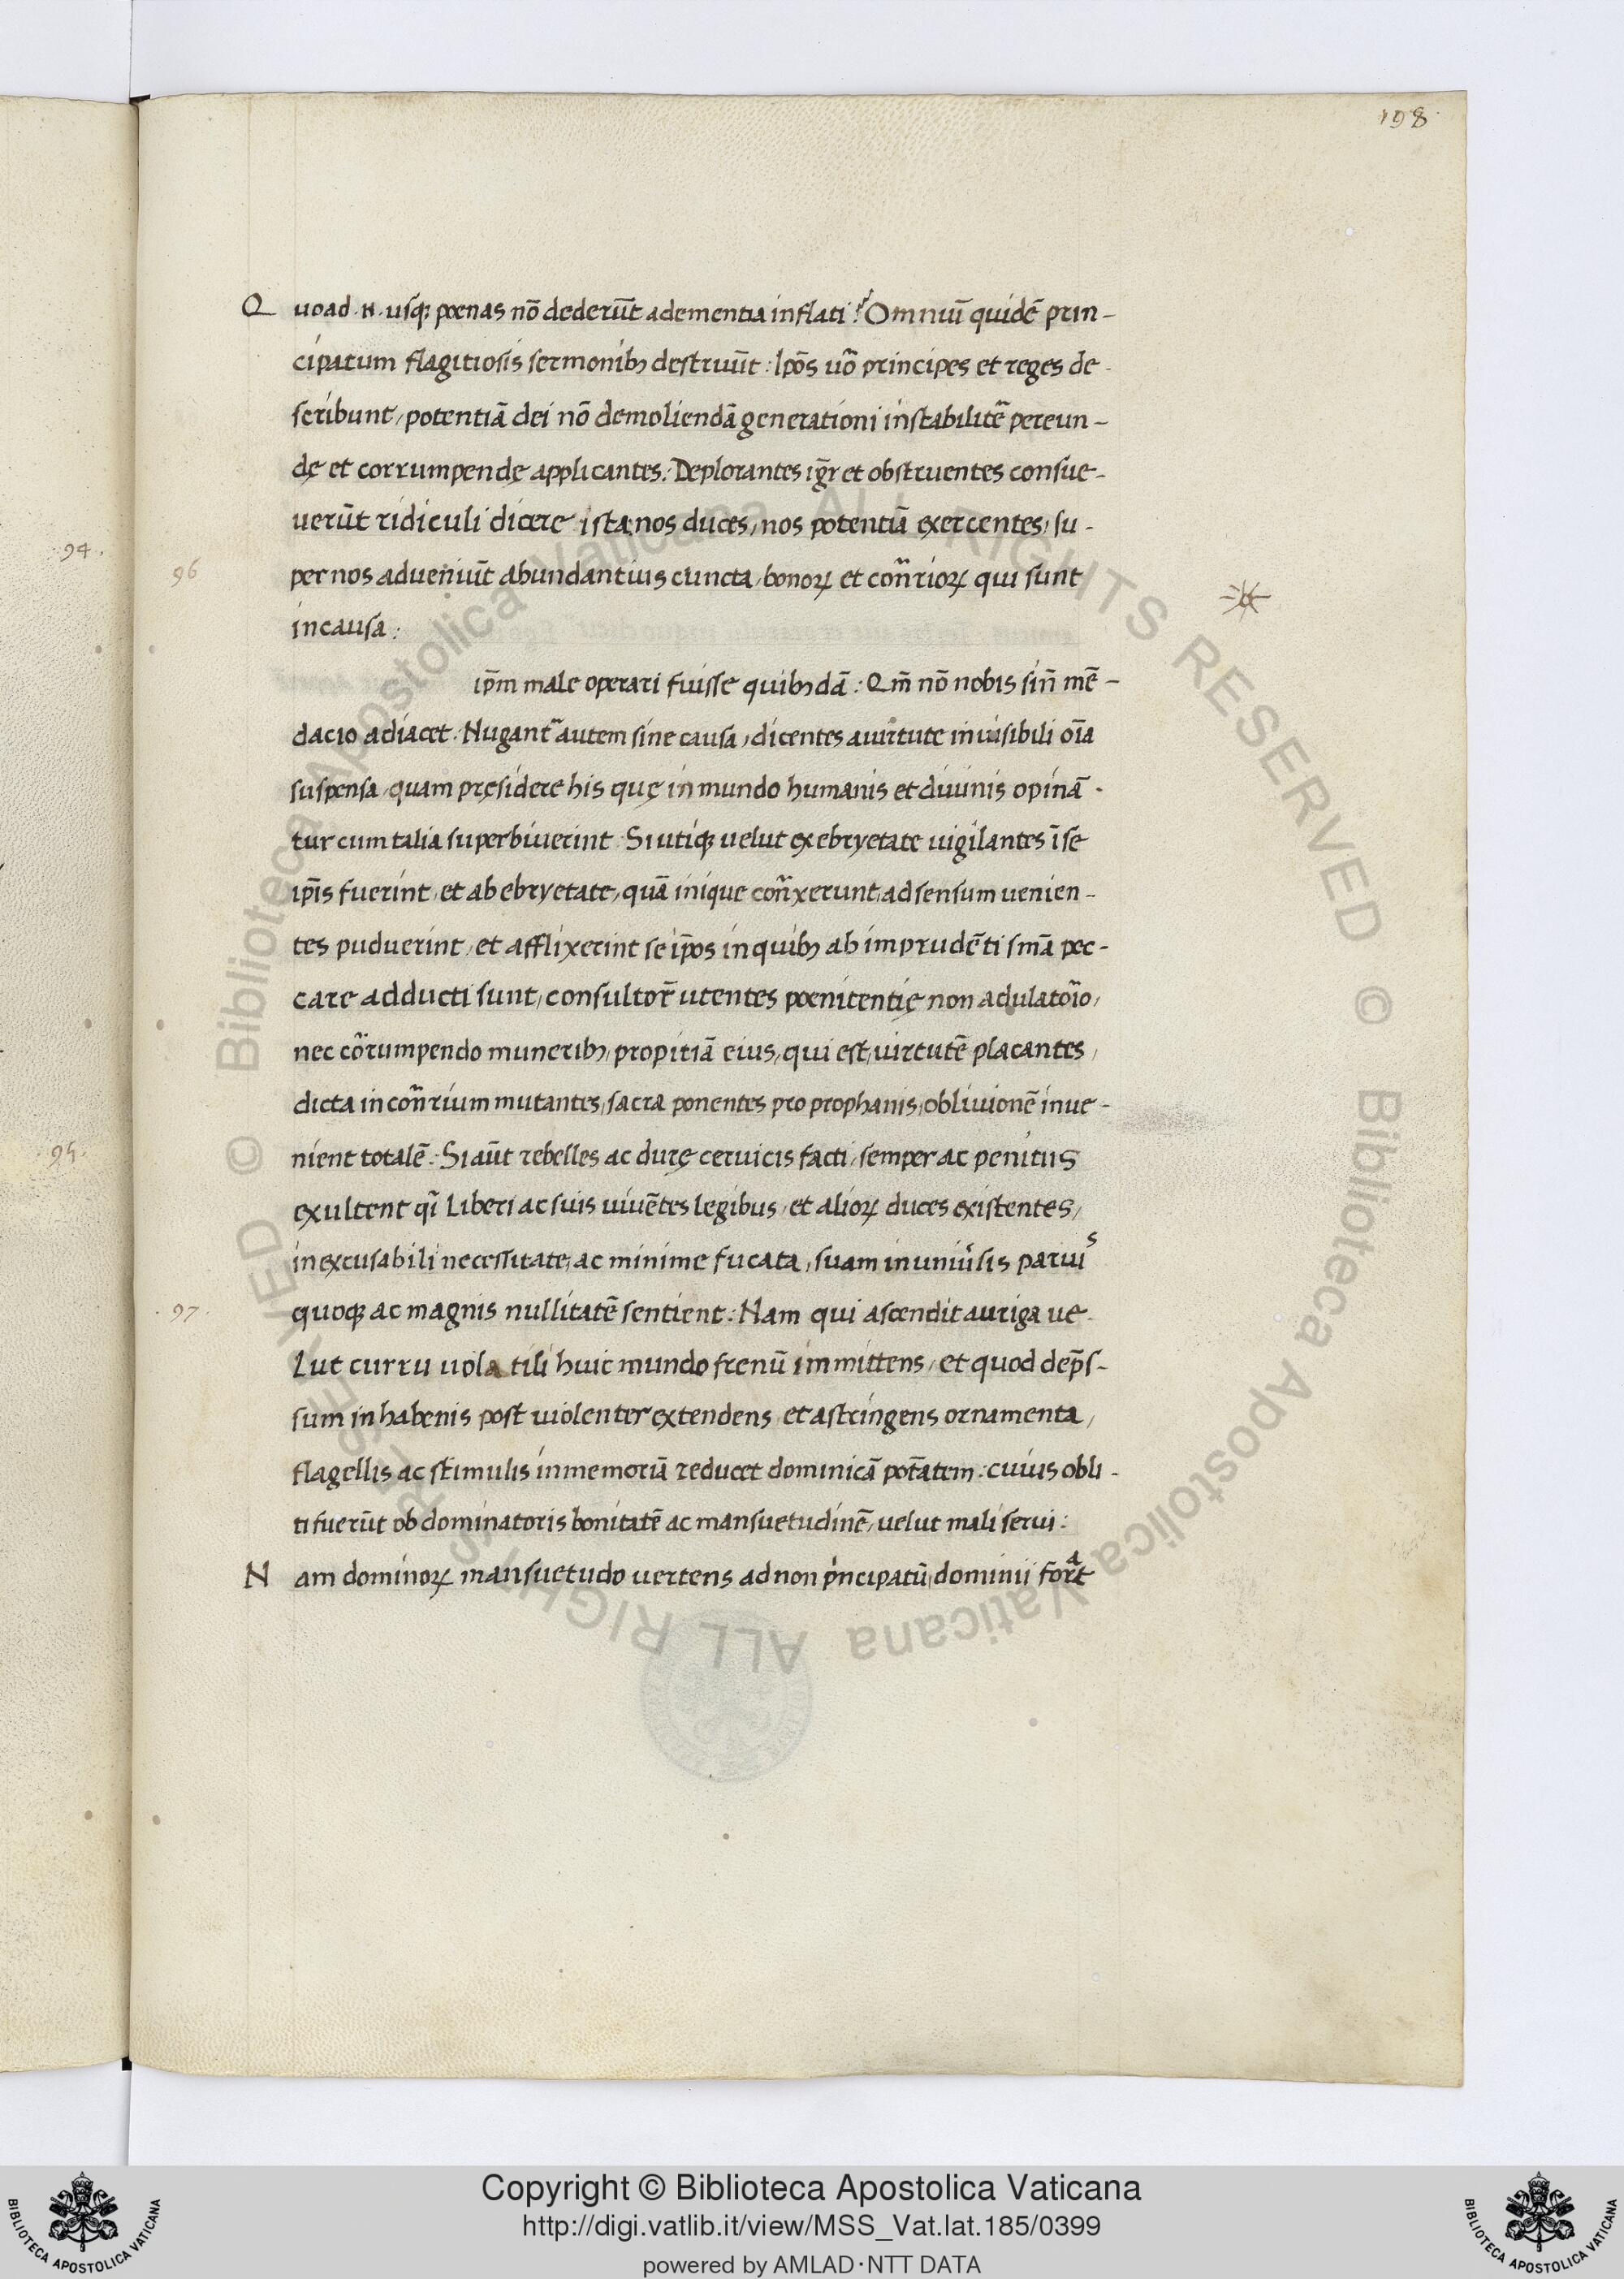 198
Q uoad .n. usq; poenas nō dederūt a dementia inflati? Omniū quidē prin-
cipatum flagitiosis sermonibꝫ destruūt: Ipōs uō principes et reges de-
scribunt, potentiā dei nō demoliendā generationi instabilitē pereun-
dę et corrumpendę applicantes: Deplorantes igr̄ et obstruentes consue-
uerūt ridiculi dicere ista, nos duces, nos potentiā exercentes, su-
94.
96
per nos adueniūt abundantius cuncta, bonoꝝ et con̄rioꝝ qui sunt
in causa:
ip̄m male operari fuisse quibꝫdā: Qm̄ nō nobis sin̄ mē-
dacio adiacet. Nugant̄ autem sine causa, dicentes a uirtute inuisibili oīa
suspensa, quam pręsidere his quę in mundo humanis et diuinis opinā-
tur cum talia superbiuerint. Si utiq; uelut ex ebryetate uigilantes ī se
ip̄is fuerint, et ab ebryetate, quā inique con̄xerunt, ad sensum uenien-
tes puduerint, et afflixerint se ip̄os in quibꝫ ab imprudētismā pec-
care adducti sunt, consultor̄ utentes poenitentię non adulator̄io,
nec cōrrumpendo muneribꝫ, propitiā eius, qui est, uirtutē placantes,
dicta in con̄rium mutantes, sacra ponentes pro prophanis, obliuionē inue-
95.
nient totalē: Si aūt rebelles ac durę ceruicis facti, semper ac penitus
exultent qī Liberi ac suis uiuētes legibus, et alioꝝ duces existentes,
inexcusabili necessitate, ac minime fucata, suam in uniūsis paruis
97.
quoq; ac magnis nullitatē sentient: Nam qui ascendit auriga ue-
Lut curru uolatili huic mundo frenū immittens, et quod dep̄s-
sum in habenis post uiolenter extendens et astringens ornamenta,
flagellis ac stimulis in memoriā reducet dominicā pot̄atem: cuius obli-
ti fuerūt ob dominatoris bonitatē ac mansuetudinē, uelut mali serui:
N am dominoꝝ mansuetudo uertens ad non pͥncipatū, dominii forat
© Biblioteca Apostolica Vaticana ALL RIGHTS RESERVED © Biblioteca Apostolica Vaticana ALL RIGHTS RESERVED
Copyright © Biblioteca Apostolica Vaticana
http://digi.vatlib.it/view/MSS_Vat.lat.185/0399
powered by AMLAD·NTT DATA
BIBLIOTECA APOSTOLICA VATICANA
BIBLIOTECA APOSTOLICA VATICANA